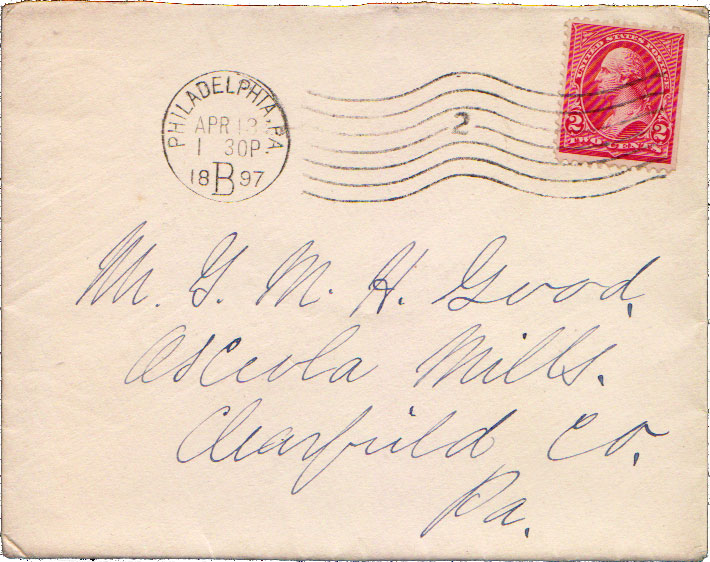 UNITED STATES POSTAGE
2 2
TWO CENTS
PHILADELPHIA, PA.
APR 13
1 30P
18 B 97
2
Mr. G. M. H. Good,
Osceola Mills.
Clearfield Co.
Pa.